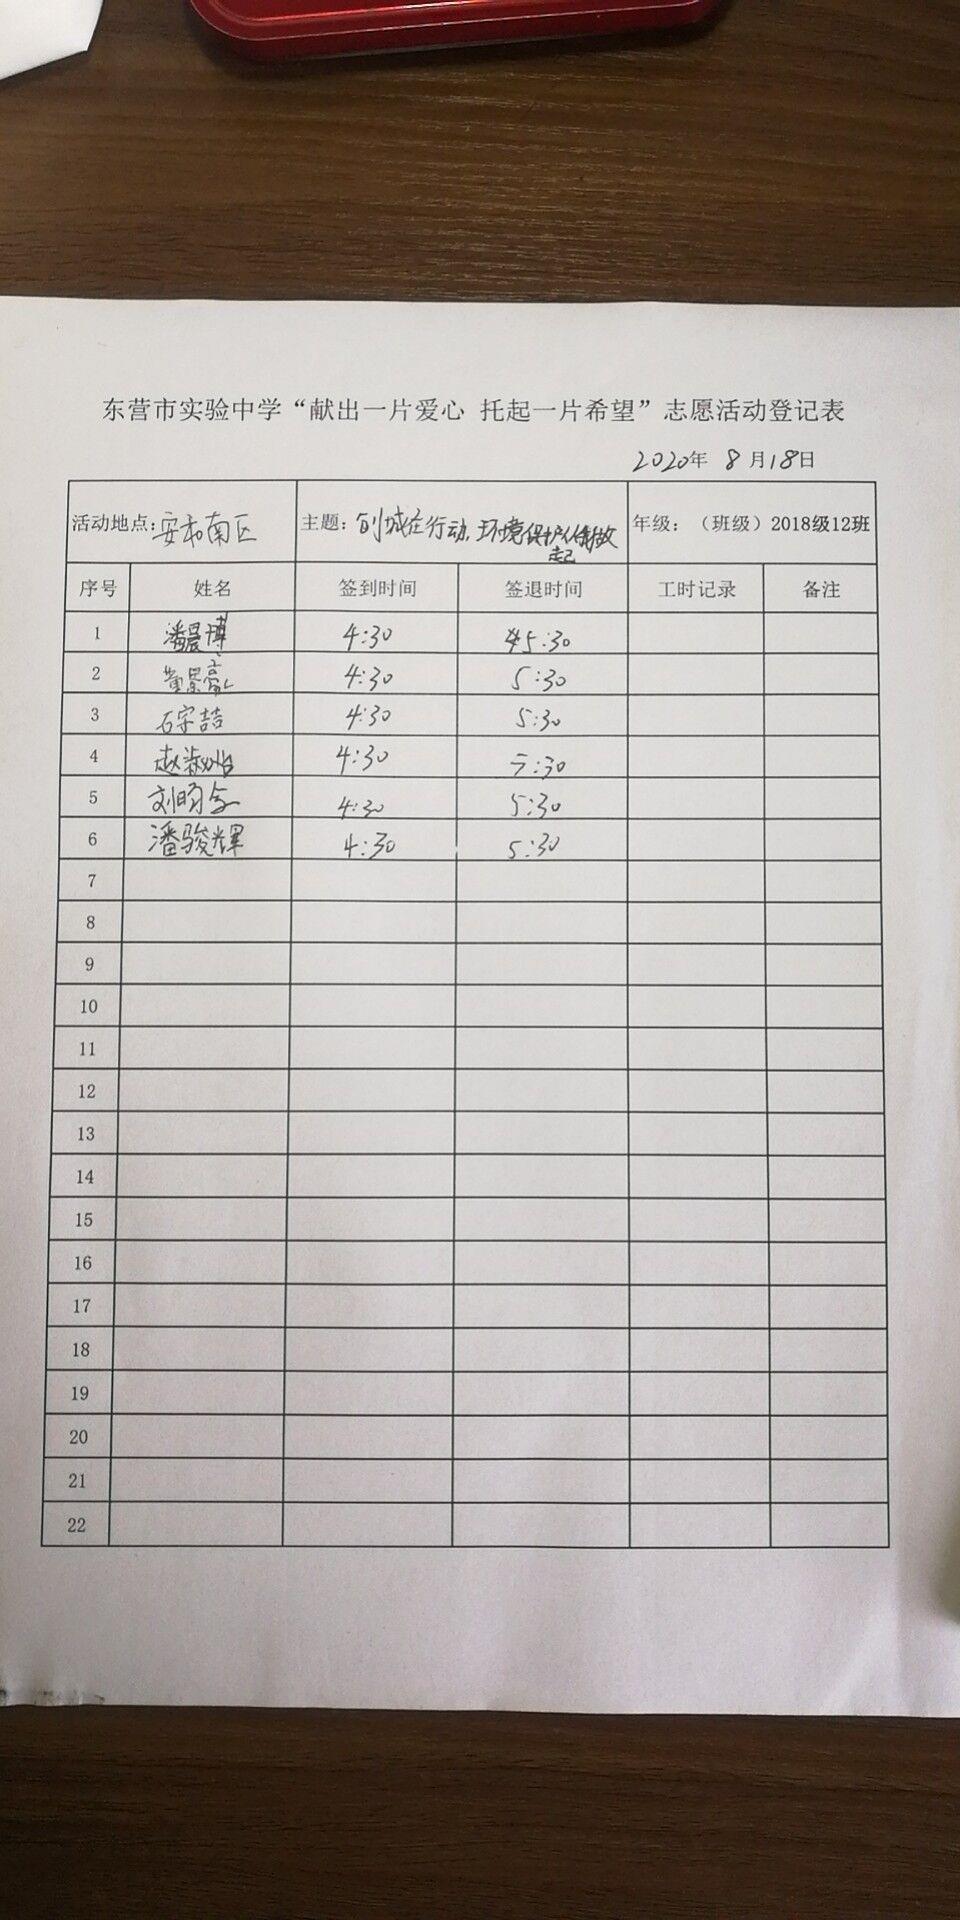 东营市实验中学“献出一片爱心 托起一片希望”志愿活动登记表
2020年 8月18日
活动地点:安和南区 主题:创城在行动,环境保护从我做起 年级:（班级）2018级12班
序号 姓名 签到时间 签退时间 工时记录 备注
1 潘晨博 4:30 5:30
2 黄景豪 4:30 5:30
3 石宇喆 4:30 5:30
4 赵淑怡 4:30 5:30
5 刘昀 4:30 5:30
6 潘骏辉 4:30 5:30
7
8
9
10
11
12
13
14
15
16
17
18
19
20
21
22